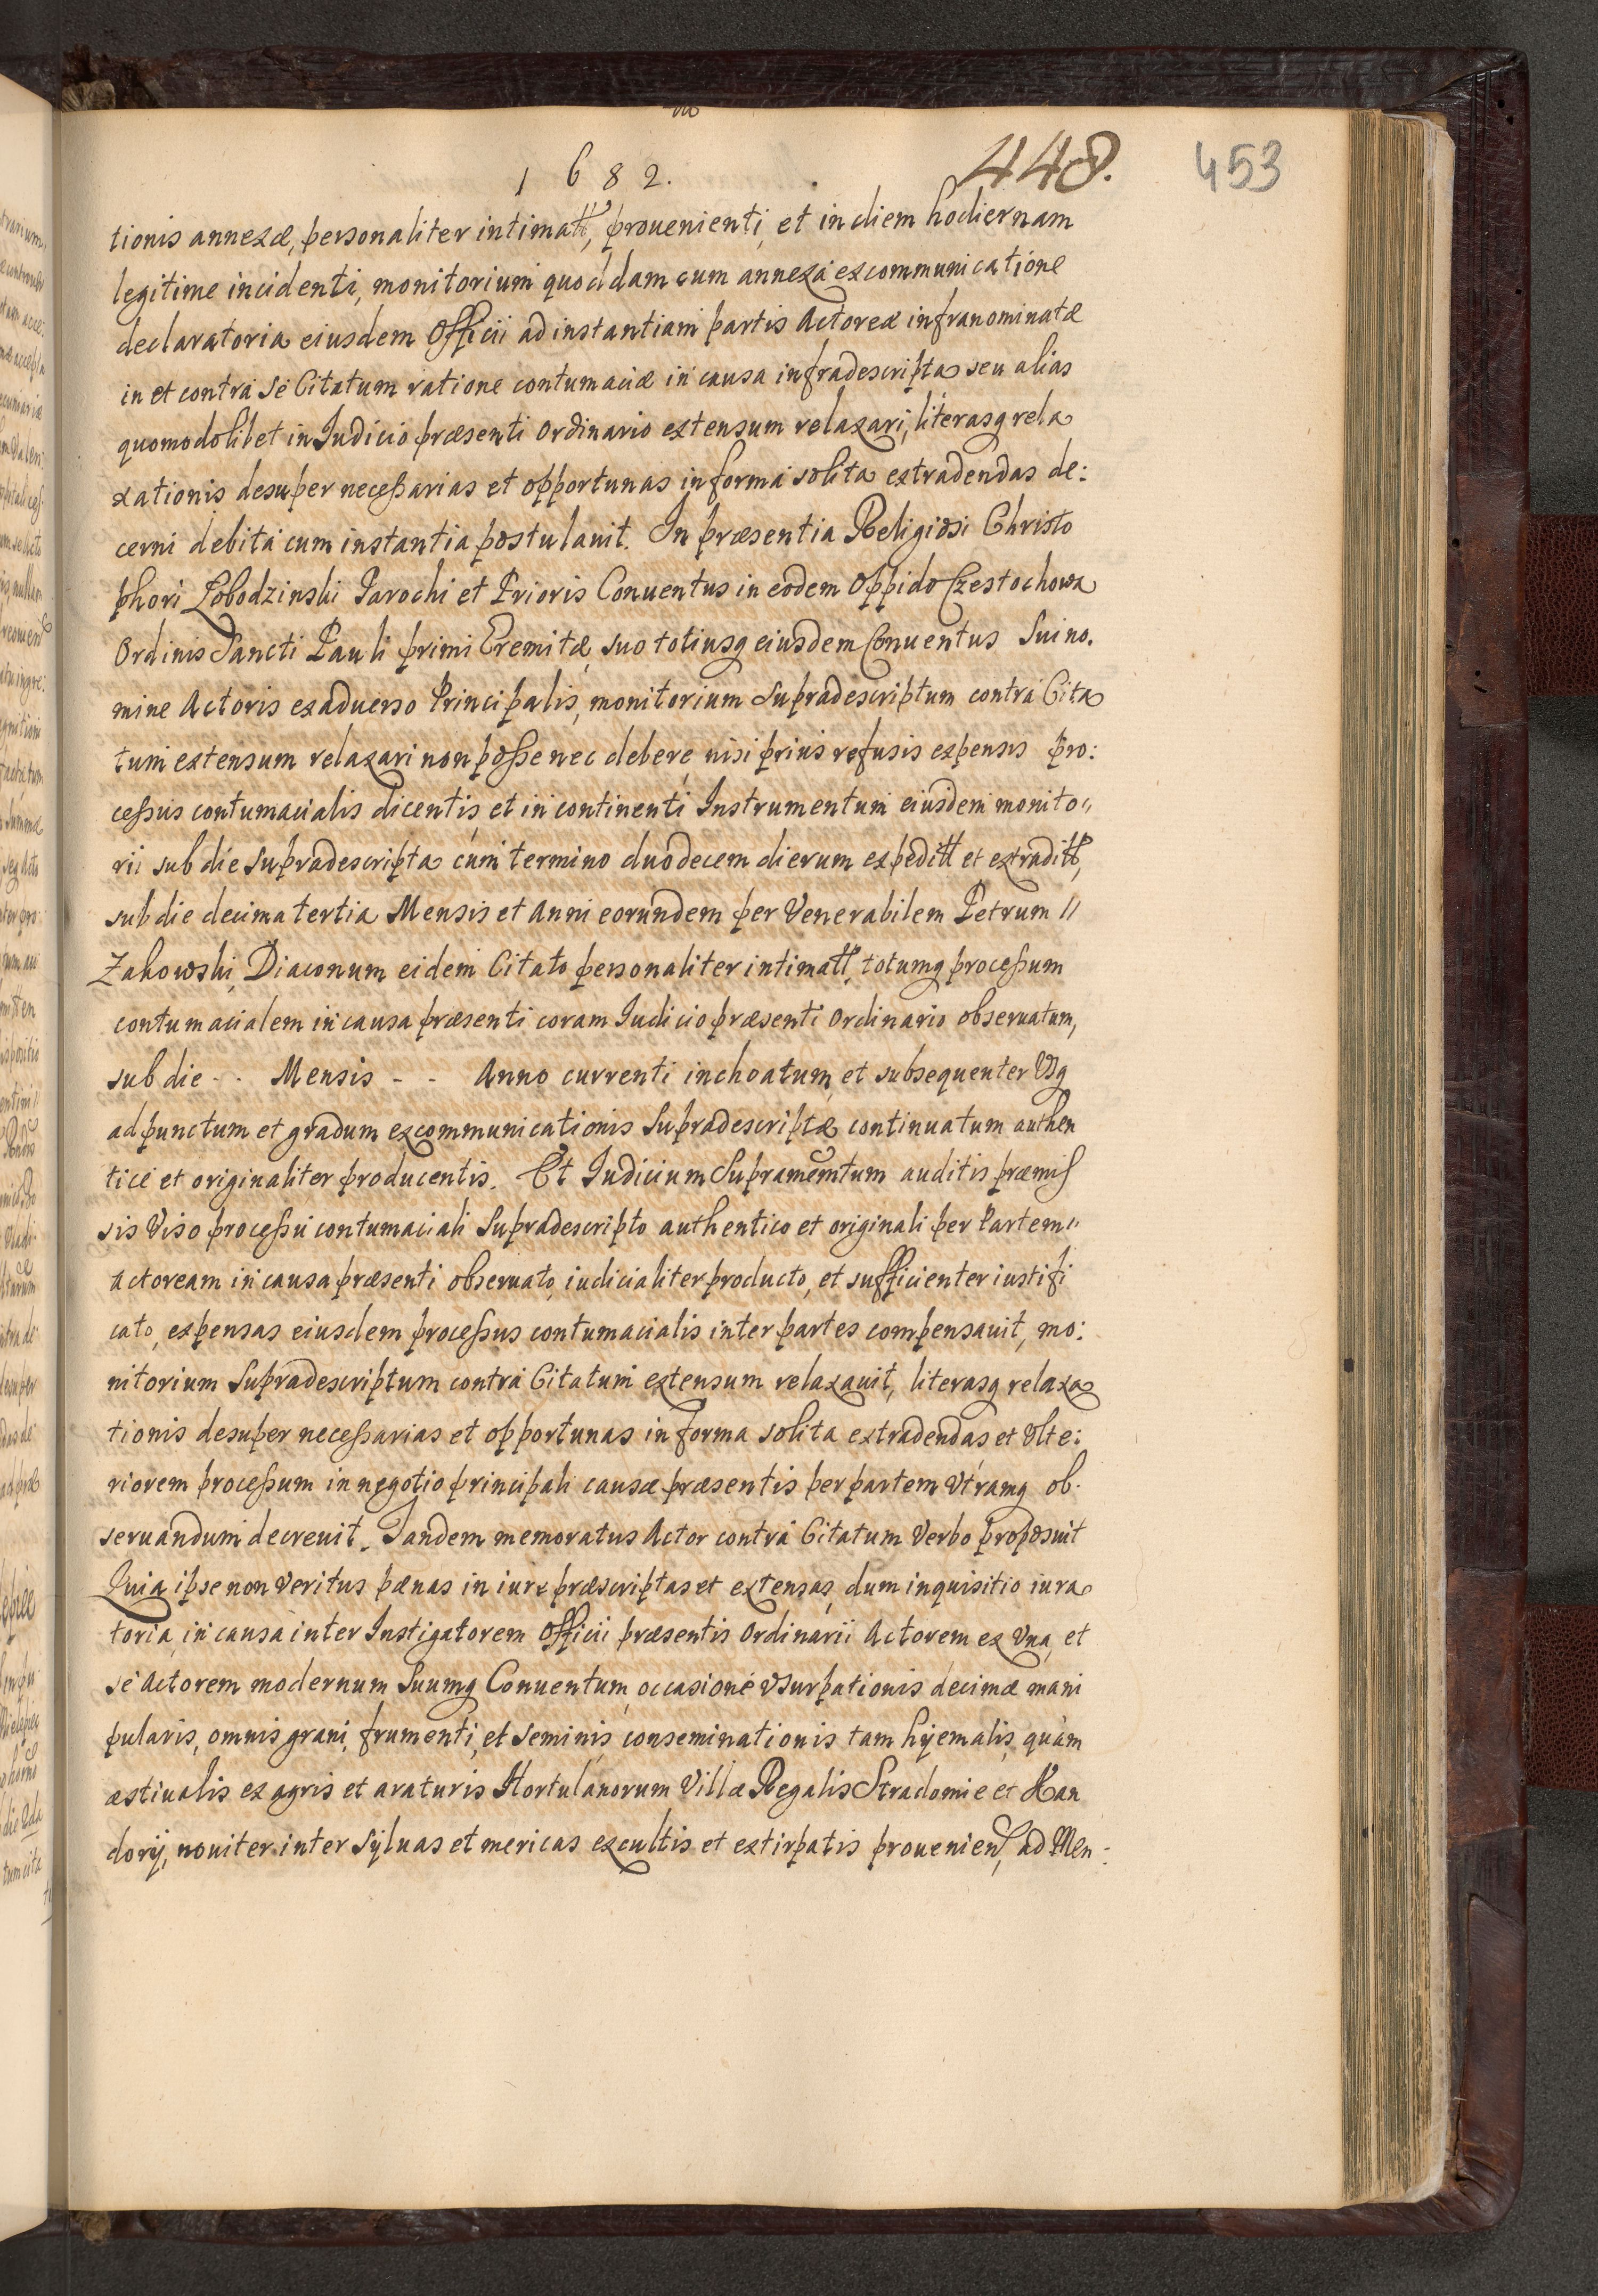 1682.
448.
453
tionis annexæ, personaliter intimatt, prouenienti, et in diem hodiernam
legitime incidenti, monitorium quoddam cum annexa excommunicatione
declaratoria eiusdem Officii ad instantiam partis Actoreæ infranominatæ
in et contra se Citatum ratione contumaciæ in causa infradescripta seu alias
quomodolibet in Iudicio præsenti Ordinario extensum relaxari, literasq rela
xationis desuper necessarias et opportunas in forma solita extradendas de:
cerni debita cum instantia postulauit. In præsentia Religiosi Christo
phori Łobodzinski Parochi et Prioris Conuentus in eodem Oppido Czestochowa
Ordinis Sancti Pauli primi Eremitæ, suo totiusq eiusdem Conuentus Sui no.
mine Actoris exaduerso Principalis, monitorium Supradescriptum contra Cita
tum extensum relaxari non posse nec debere, nisi prius refusis expensis pro:
cessus contumacialis dicentis, et in continenti Instrumentum eiusdem monito"
rii sub die Supradescripta cum termino duodecem dierum expeditt et extraditt,
sub die decima tertia Mensis et Anni eorundem per Venerabilem Petrum //
Zakowski, Diaconum eidem Citato personaliter intimatt, totumq processum
contumacialem in causa præsenti coram Iudicio præsenti Ordinario obseruatum,
sub die - - Mensis - - Anno currenti inchoatum, et subsequenter Vsq
ad punctum et gradum excommunicationis Supradescriptæ continuatum authen
tice et originaliter producentis. Et Iudicium Supramemtum auditis præmis
sis Viso processu contumaciali Supradescripto authentico et originali per Partem"
actoream in causa præsenti obseruato, iudicialiter producto, et sufficienter iustifi
cato, expensas eiusdem processus contumacialis inter partes compensauit, mo:
nitorium Supradescriptum contra Citatum extensum relaxauit, literasq relaxa
tionis desuper necessarias et opportunas in forma solita extradendas et Vlte:
riorem processum in negotio principali causæ præsentis per partem Vtramq ob.
seruandum decreuit. Tandem memoratus Actor contra Citatum Verbo proposuit
Quia ipse non Veritus pœnas in iure præscriptas et extensas, dum inquisitio iura
toria, in causa inter Instigatorem Officii præsentis Ordinarii Actorem ex Vna, et
se Actorem modernum Suumq Conuentum, occasione Vsurpationis decimæ mani
pularis, omnis grani, frumenti, et Seminis, conseminationis tam hyemalis, quam
æstiualis ex agris et araturis Hortulanorum Villæ Regalis Stradomie et Kan
dory, nouiter inter Syluas et mericas excultis et extirpatis prouenien, ad Men: